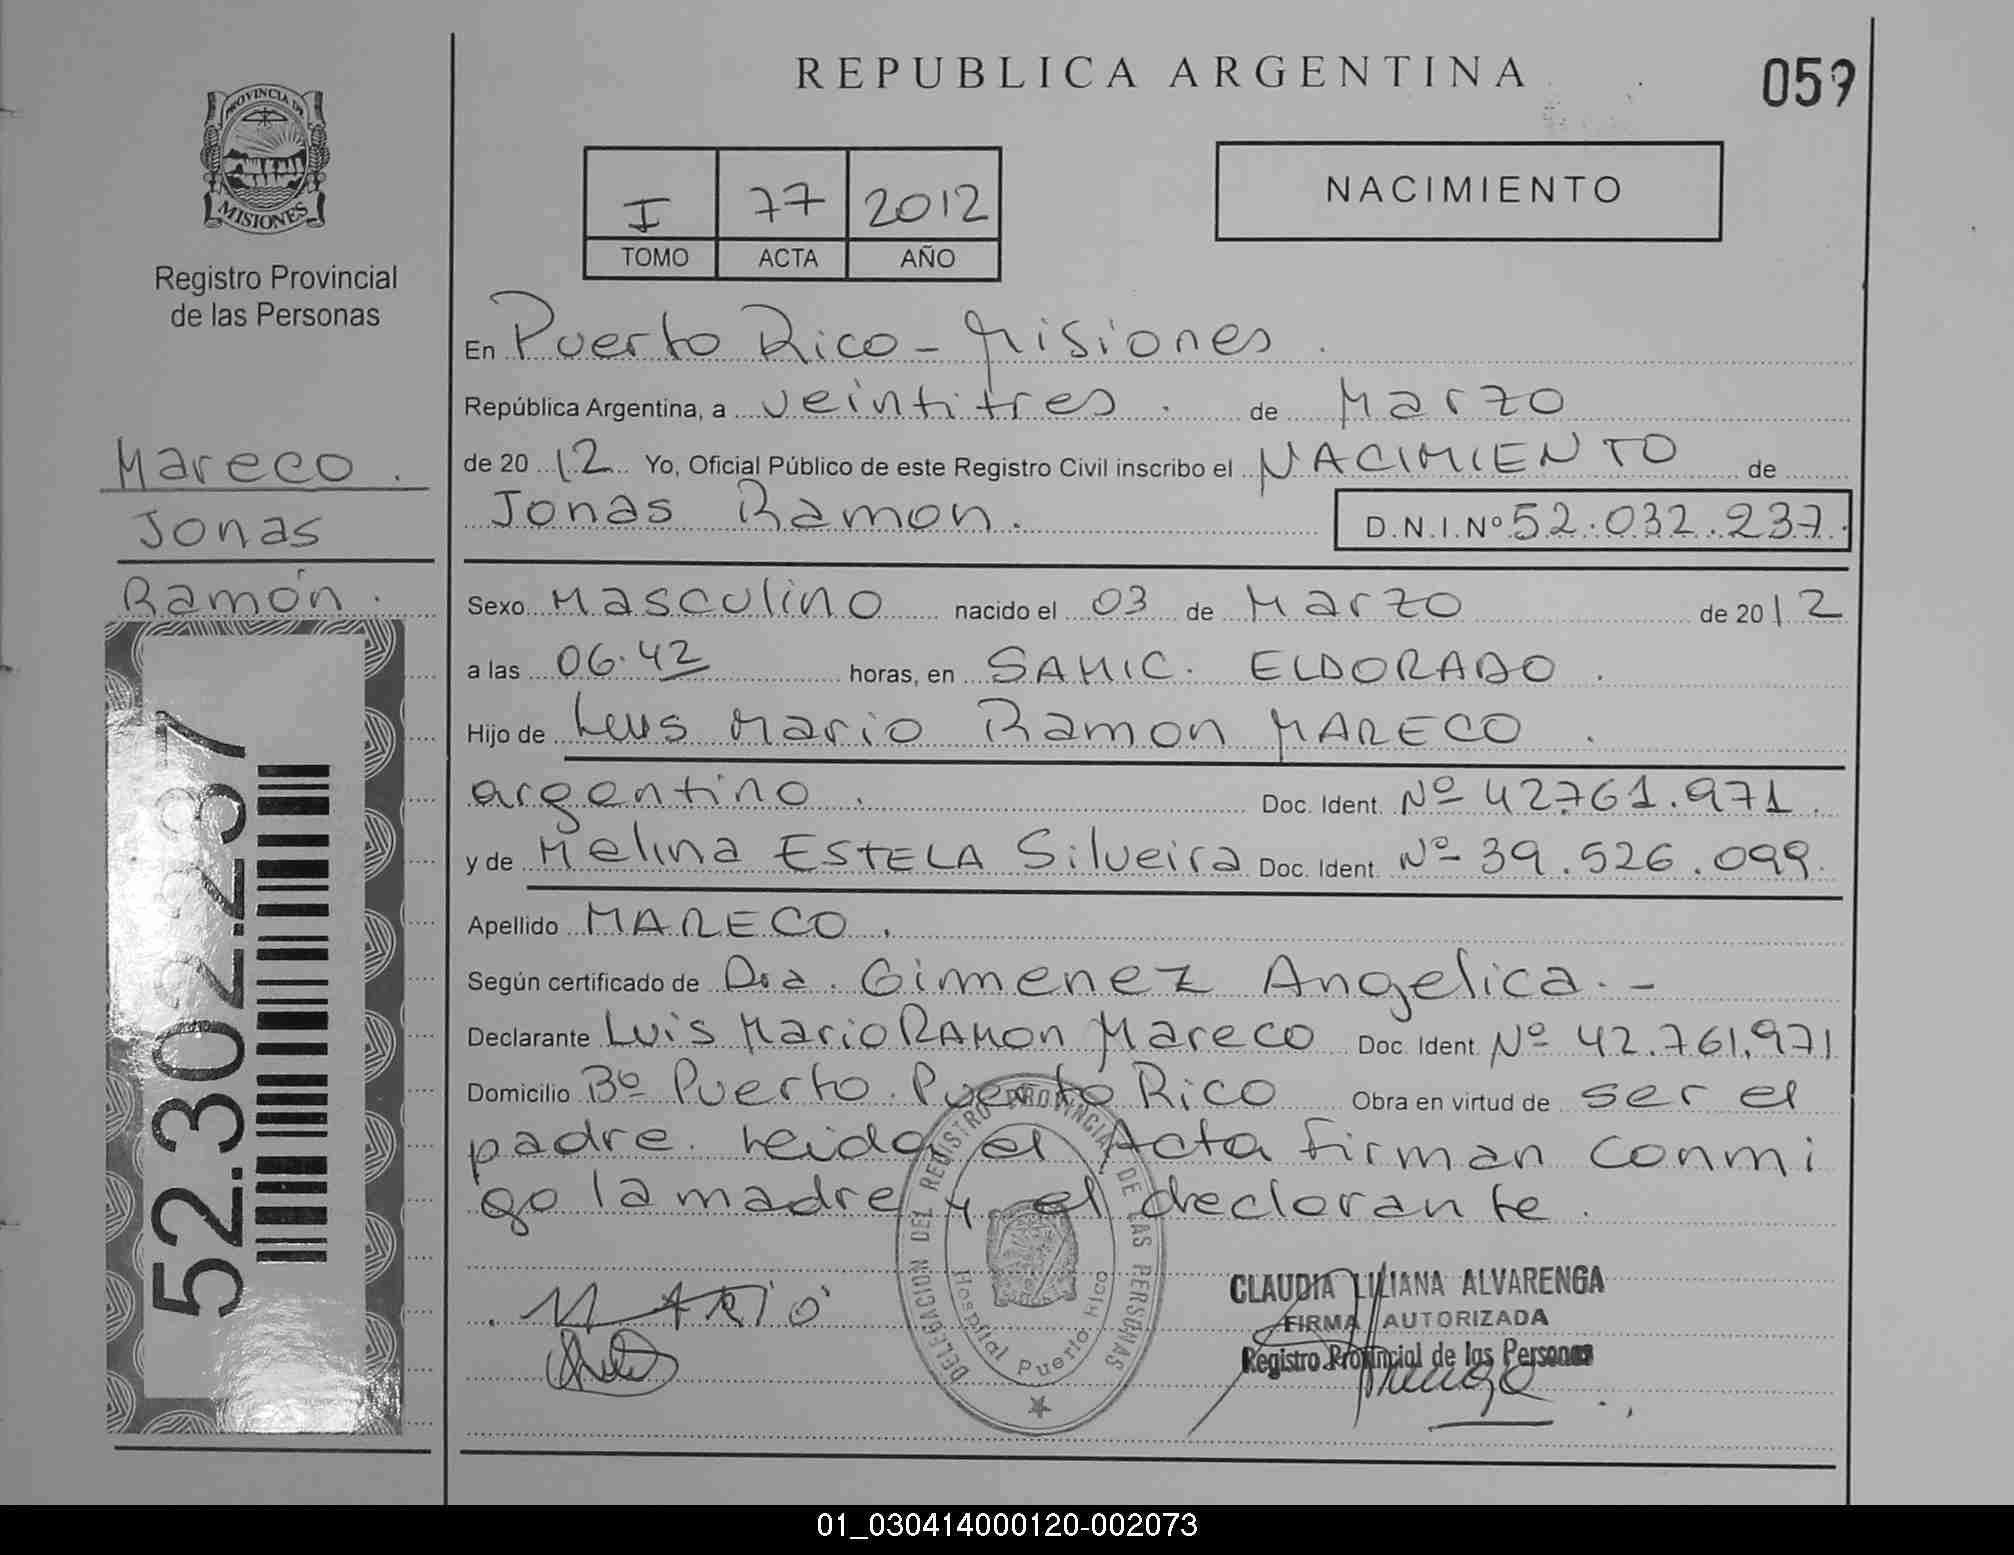 REPUBLICA ARGENTINA
059
PROVINCIA DE
MISIONES
Registro Provincial
de las Personas
I 77 2012
TOMO ACTA AÑO
NACIMIENTO
Mareco.
Jonas
Ramón.
52.302.237
En Puerto Rico - Misiones.
República Argentina, a veintitres. de Marzo
de 2012 Yo, Oficial Público de este Registro Civil inscribo el NACIMIENTO de
Jonas Ramon. D.N.I.Nº 52.032.237.
Sexo Masculino nacido el 03 de Marzo de 2012
a las 06.42 horas, en SAMIC. ELDORADO.
Hijo de Luis Mario Ramon MARECO.
argentino. Doc. Ident. Nº 42761.971.
y de Melina ESTELA Silveira Doc. Ident. Nº 39.526.099.
Apellido MARECO.
Según certificado de Dra. Gimenez Angelica.-
Declarante Luis Mario RAMON Mareco Doc. Ident. Nº 42.761.971
Domicilio Bº Puerto. Puerto Rico Obra en virtud de ser el
padre. Leida el Acta firman conmi
go la madre y el declarante.
MARIO
DELEGACION DEL REGISTRO PROVINCIAL DE LAS PERSONAS
Hospital Puerto Rico
CLAUDIA LILIANA ALVARENGA
FIRMA AUTORIZADA
Registro Provincial de las Personas
01_030414000120-002073